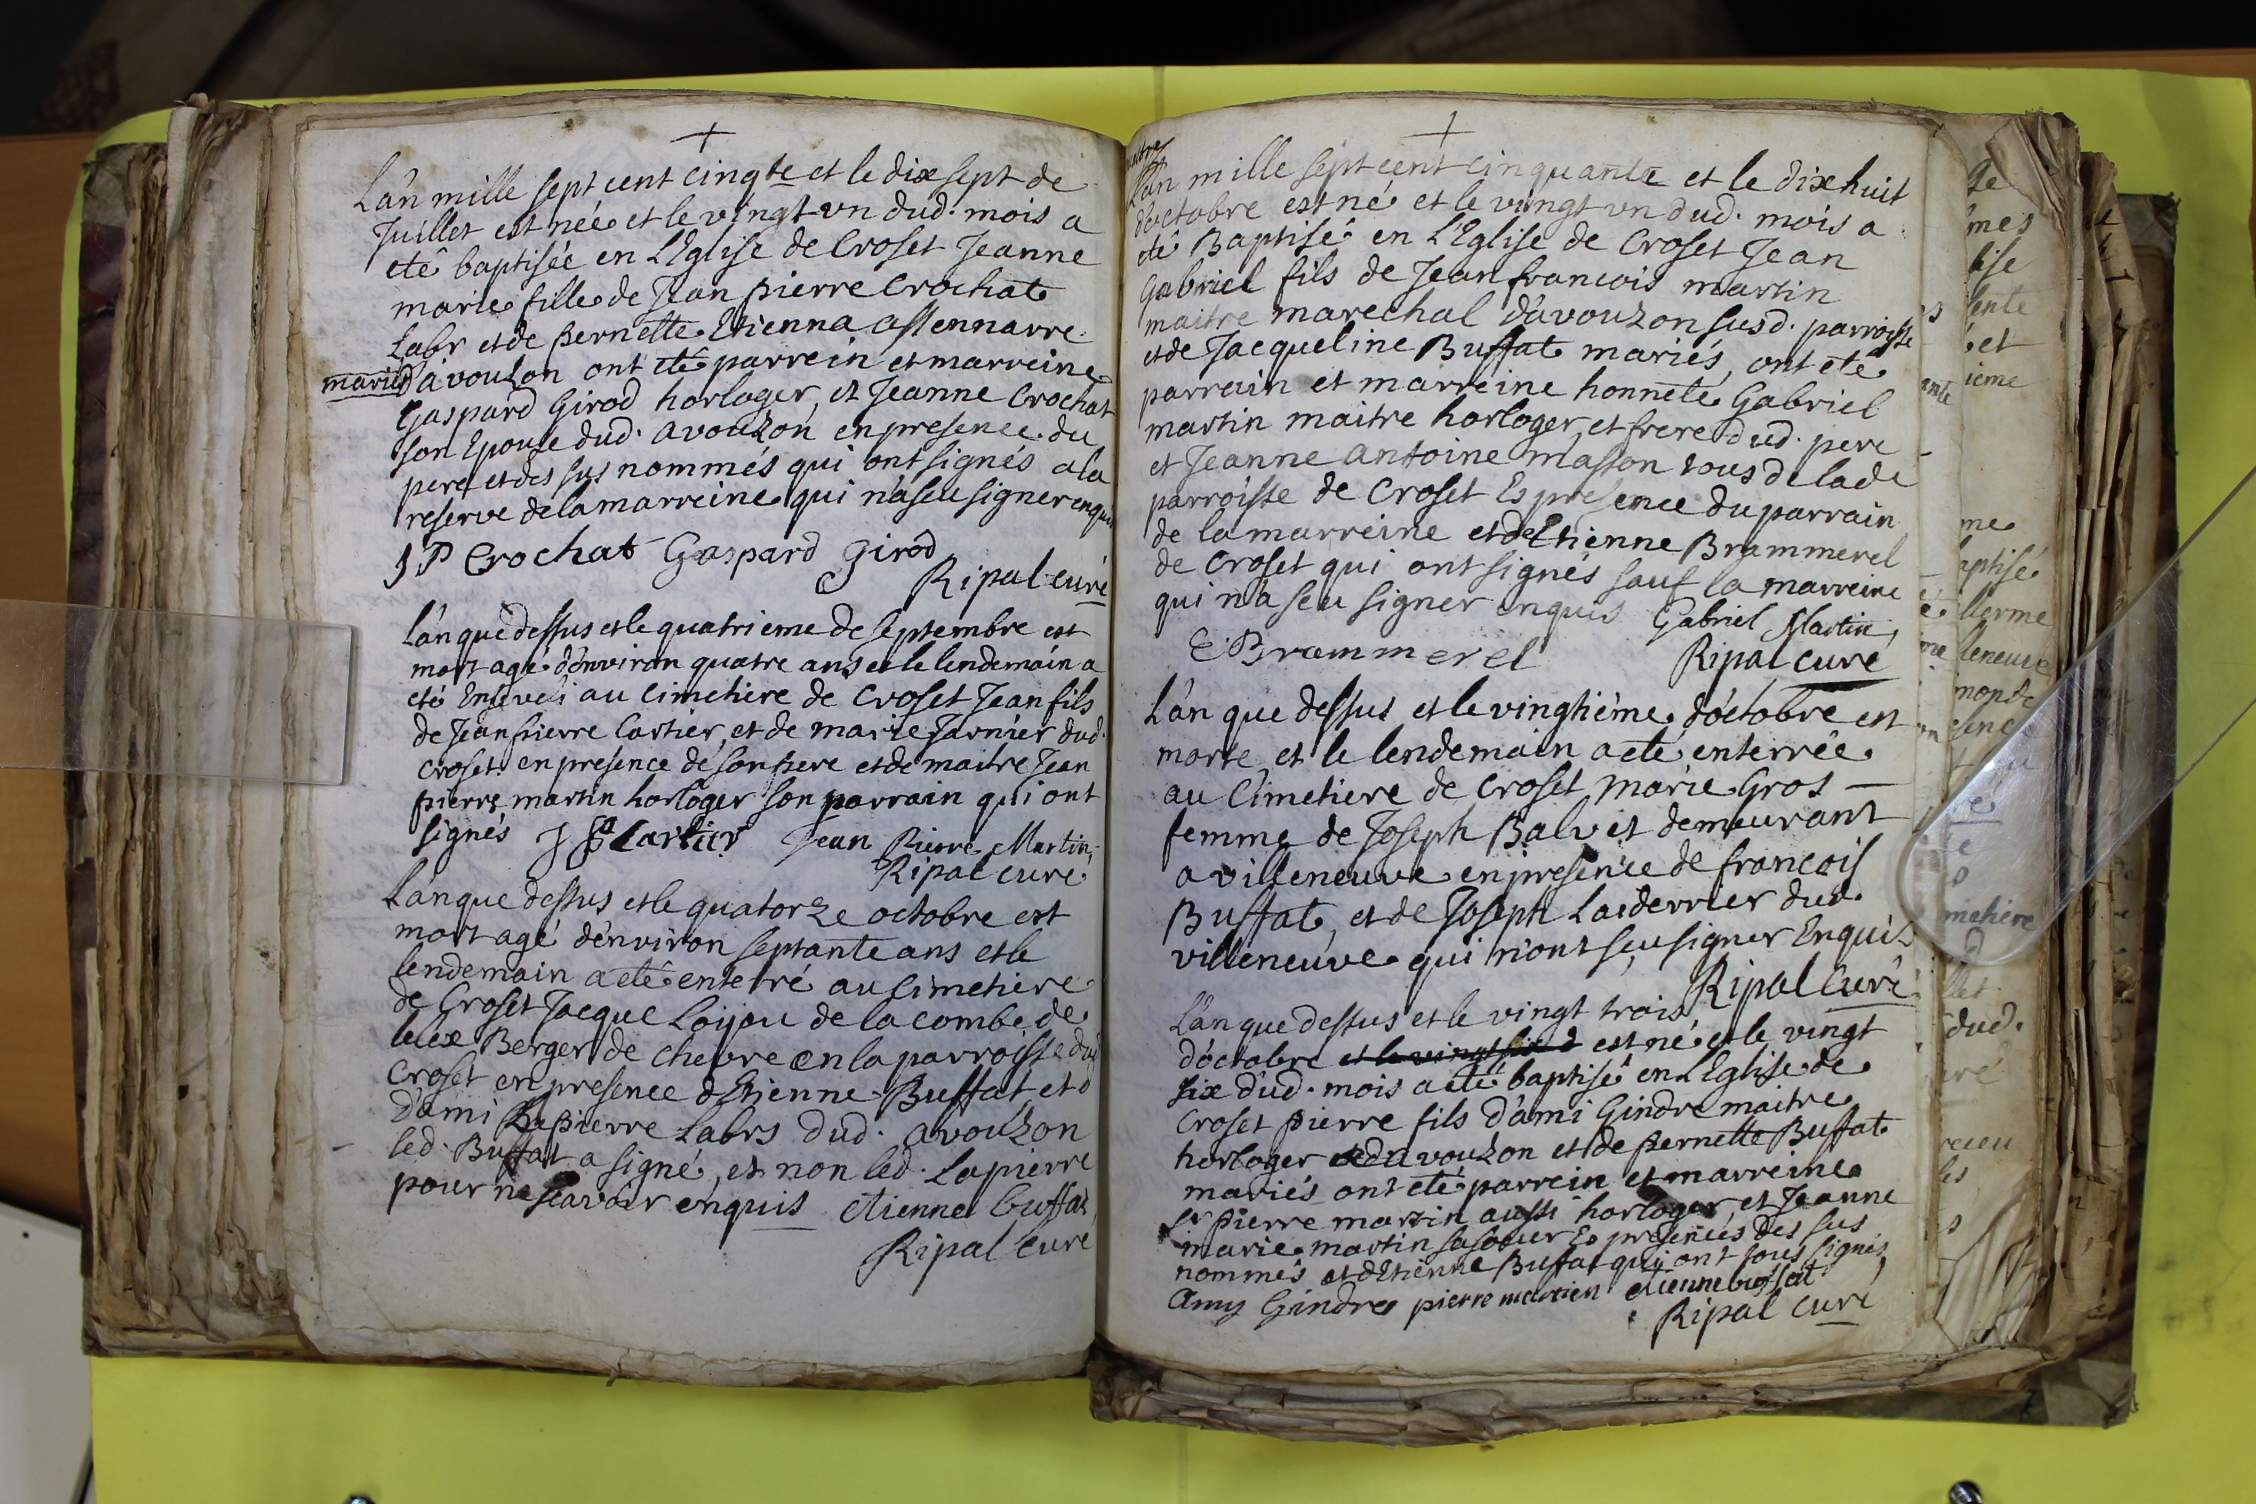 L'an mille sept cent cinqte et le dix sept de
Juillet est née et le vingt un dud. mois a
eté baptisée en L'Eglise de Croset Jeanne
marie fille de Jean pierre Crochat
Labr et de pernette Etienna assennarre
mariés d'avouzon ont eté parrein et marreine
Gaspard Girod horloger, et Jeanne Crochat
son Epouse dud. avouzon en presence du
pere et des sus nommés qui ont signés a la
reserve de la marreine qui n'a seu signer enquis
J P Crochat Gaspard Girod
Ripal curé
L'an que dessus et le quatrieme de septembre est
mort agé d'environ quatre ans et le lendemain a
eté Enseveli au cimetiere de Croset Jean fils
de Jean pierre Cartier, et de marie Jarnier dud.
Croset en presence de son pere et de maitre Jean
pierre martin horloger son parrain qui ont
signés J P Cartier Jean Pierre Martin,
Ripal curé
L'an que dessus et le quatorze octobre est
mort agé d'environ septante ans et le
lendemain a eté enterré au Cimetiere
de Croset Jacque Loijou de la combe de
lelex Berger de chevre en la parroisse dud
Croset en presence d'Etienne Buffat, et
d'ami Lapierre Labrs dud. avouzon
led. Buffat a signé, et non led. Lapierre
pour ne scavoir enquis etienne buffat,
Ripal curé
L'an mille sept cent cinquante et le dix huit
d'octobre est né et le vingt un dud. mois a
eté Baptisé en L'Eglise de Croset Jean
Gabriel fils de Jean francois martin
maitre marechal d'avouzon susd. parroisse
et de Jacqueline Buffat mariés, ont eté
parrain et marreine honnete Gabriel
martin maitre horloger, et frere dud. pere
et Jeanne antoine masson tous de lade
parroisse de Croset Es presence du parrain
de la marreine et de Etienne Brammerel
de Croset qui ont signés sauf la marreine
qui n'a seu signer enquis Gabriel Martin,
E Brammerel Ripal curé
L'an que dessus et le vinghtième d'octobre est
morte, et le lendemain a eté enterrée
au Cimetiere de Croset marie Gros
femme de Joseph Balvet demeurant
a villeneuve en presence de francois
Buffat, et de Joseph Laiderrier dud.
villeneuve qui n'ont seu signer Enquis
Ripal curé
L'an que dessus et le vingt trois
d'octobre et le vingt six d est né et le vingt
six dud. mois a eté baptisé en L'Eglise de
Croset pierre fils d'ami Gindre maitre
horloger d'avouzon et de pernette Buffat
mariés ont eté parrein et marreine
Sr pierre martin aussi horloger, et Jeanne
marie martin sa soeur Es presences des sus
nommés et d'Etienne Buffat qui ont tous signés
Amy Gindre pierre martien etienne buffat
Ripal curé